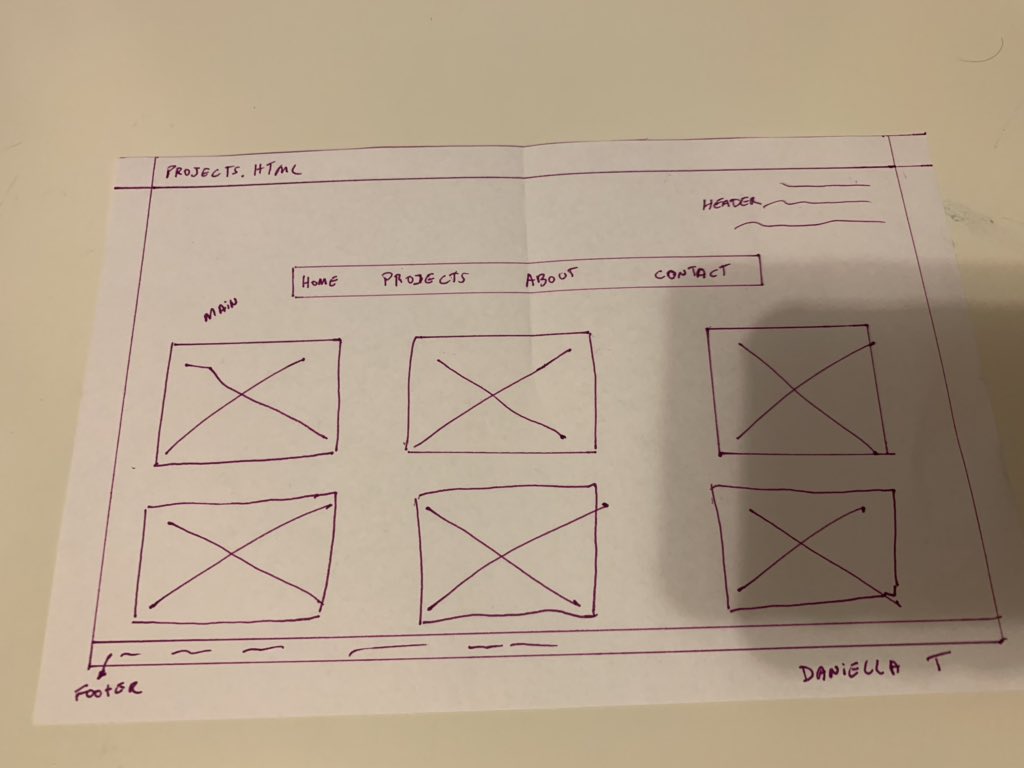 PROJECTS.HTML
HEADER
HOME PROJECTS ABOUT CONTACT
MAiN
FOOTER
DANiELLA T